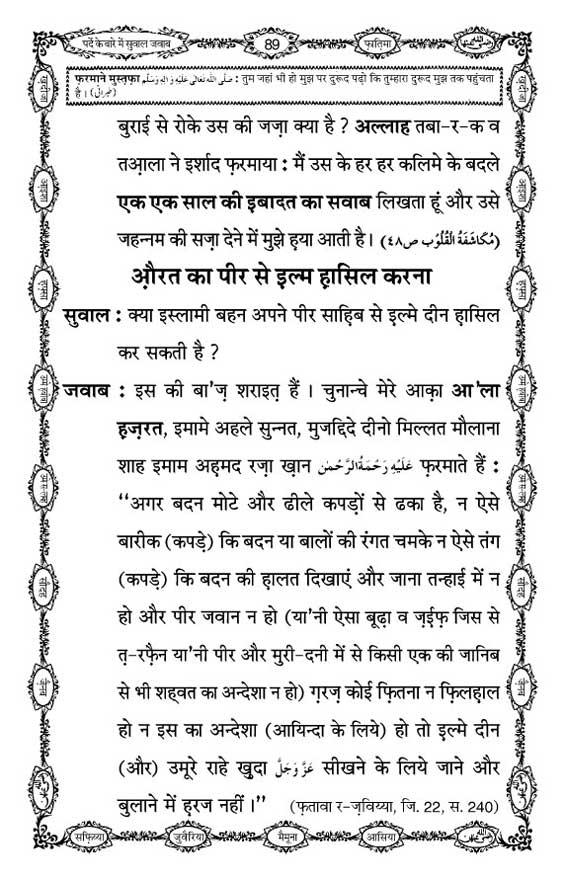 पर्दे के बारे में सुवाल जवाब
89
फ़ातिमा
फ़रमाने मुस्तफ़ा صَلَّى اللّٰهُ تَعَالٰى عَلَيْهِ وَاٰلِهٖ وَسَلَّم : तुम जहां भी हो मुझ पर दुरूद पढ़ो कि तुम्हारा दुरूद मुझ तक पहुंचता
है । (طبرانی)
बुराई से रोके उस की जज़ा क्या है ? अल्लाह तबा-र-क व
तआ़ला ने इर्शाद फ़रमाया : मैं उस के हर हर कलिमे के बदले
एक एक साल की इ़बादत का सवाब लिखता हूं और उसे
जहन्नम की सज़ा देने में मुझे ह़या आती है। (مُکَاشَفَةُ الْقُلُوْب ص٤٨)
औ़रत का पीर से इ़ल्म ह़ासिल करना
सुवाल : क्या इस्लामी बहन अपने पीर साह़िब से इ़ल्मे दीन ह़ासिल
कर सकती है ?
जवाब : इस की बा'ज़ शराइत़ हैं । चुनान्चे मेरे आक़ा आ'ला
ह़ज़रत, इमामे अहले सुन्नत, मुजद्दिदे दीनो मिल्लत मौलाना
शाह इमाम अह़मद रज़ा ख़ान عَلَيْهِ رَحْمَةُ الرَّحْمٰن फ़रमाते हैं :
“अगर बदन मोटे और ढीले कपड़ों से ढका है, न ऐसे
बारीक (कपड़े) कि बदन या बालों की रंगत चमके न ऐसे तंग
(कपड़े) कि बदन की ह़ालत दिखाएं और जाना तन्हाई में न
हो और पीर जवान न हो (या'नी ऐसा बूढ़ा व ज़ई़फ़ जिस से
त़-रफ़ैन या'नी पीर और मुरी-दनी में से किसी एक की जानिब
से भी शह्वत का अन्देशा न हो) ग़रज़ कोई फ़ितना न फ़िलह़ाल
हो न इस का अन्देशा (आयिन्दा के लिये) हो तो इ़ल्मे दीन
(और) उमूरे राहे ख़ुदा عَزَّ وَجَلَّ सीखने के लिये जाने और
बुलाने में ह़रज नहीं ।” (फ़तावा र-ज़विय्या, जि. 22, स. 240)
सफ़िय्या
जुवैरिया
मैमूना
आसिया